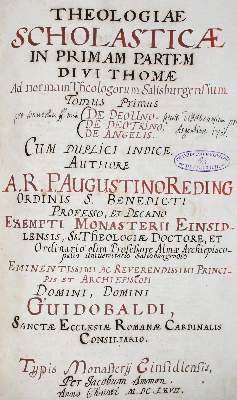 THEOLOGIAE
SCHOLASTICÆ
IN PRIMAM PARTEM
DIVI THOMÆ
Ad normam Theologorum Salisburgensium.
Tomus Primus
DE DEO UNO.
DE DEO TRINO.
DE ANGELIS.
CUM DUPLICI INDICE.
AUTHORE
A. R. P. AUGUSTINO REDING
ORDINIS S. BENEDICTI
PROFESSO, ET DECANO
EXEMPTI MONASTERII EINSID-
LENSIS, SS. THEOLOGIÆ DOCTORE, ET
Ordinario olim Professore Almæ Archiepisco-
palis Universitatis Salisburgensis
EMINENTISSIMI AC REVERENDISSIMI PRINCI-
PIS ET ARCHIEPISCOPI
DOMINI, DOMINI
GUIDOBALDI,
SANCTÆ ECCLESIÆ ROMANÆ CARDINALIS
CONSILIARIO.
Typis Monasterij Einsidlensis,
Per Jacobum Ammon.
Anno Christi M. DC. LXVII.